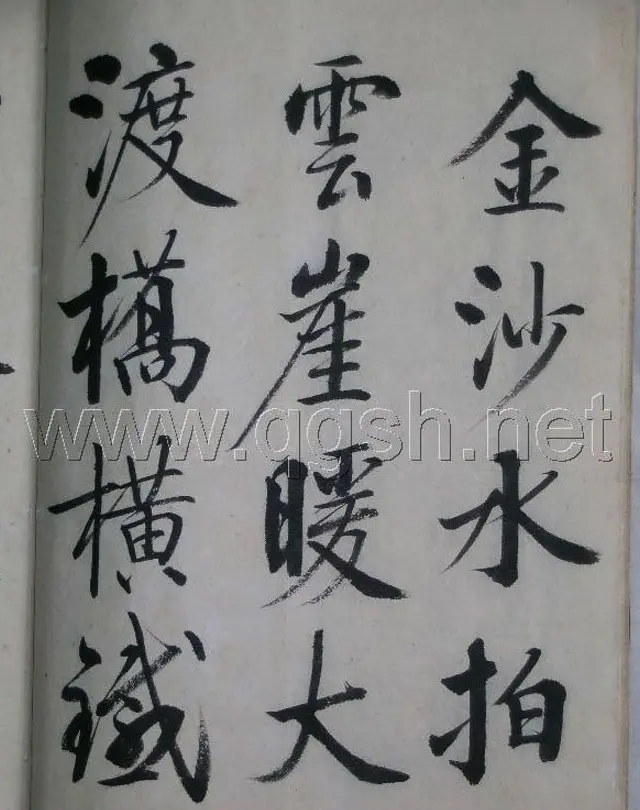 金沙水拍
雲崖暖大
渡橋橫鐵
www.qgsh.net